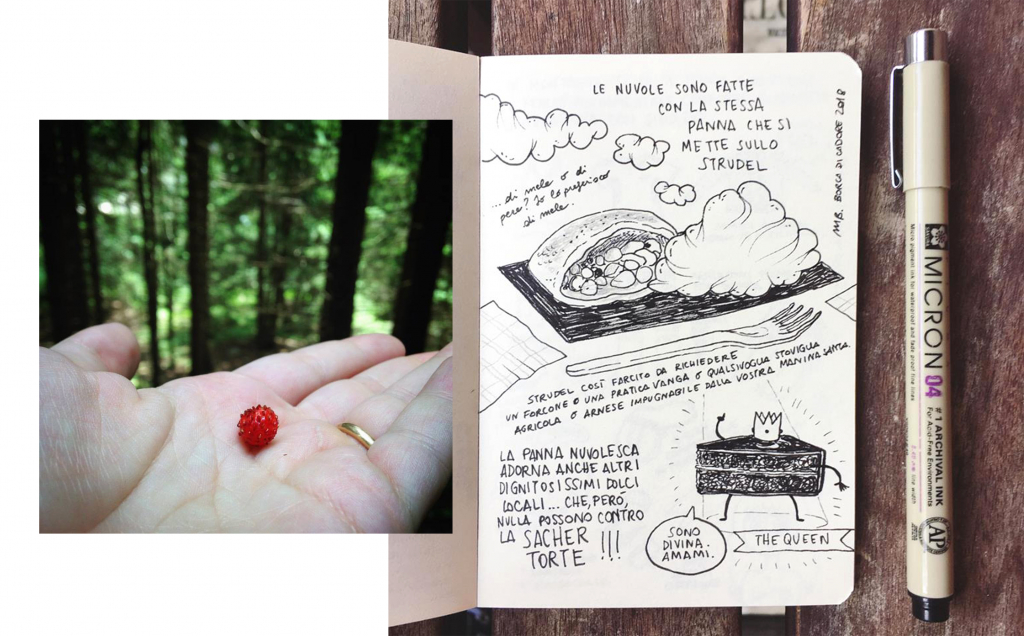 LE NUVOLE SONO FATTE
CON LA STESSA
PANNA CHE SI
METTE SULLO
STRUDEL
MB. BORCA DI CADORE 2018
...di mele o di
pere? Io lo preferisco
di mele.
STRUDEL COSÌ FARCITO DA RICHIEDERE
UN FORCONE O UNA PRATICA VANGA O QUALSIVOGLIA STOVIGLIA
AGRICOLA O ARNESE IMPUGNABILE DALLA VOSTRA MANINA SANTA.
LA PANNA NUVOLESCA
ADORNA ANCHE ALTRI
DIGNITOSISSIMI DOLCI
LOCALI... CHE, PERÒ,
NULLA POSSONO CONTRO
LA SACHER
TORTE !!!
SONO
DIVINA.
AMAMI.
THE QUEEN
MICRON 04
Micro pigment ink for waterproof and fade proof fine lines
#1 ARCHIVAL INK
For Acid-Free Environments
AP